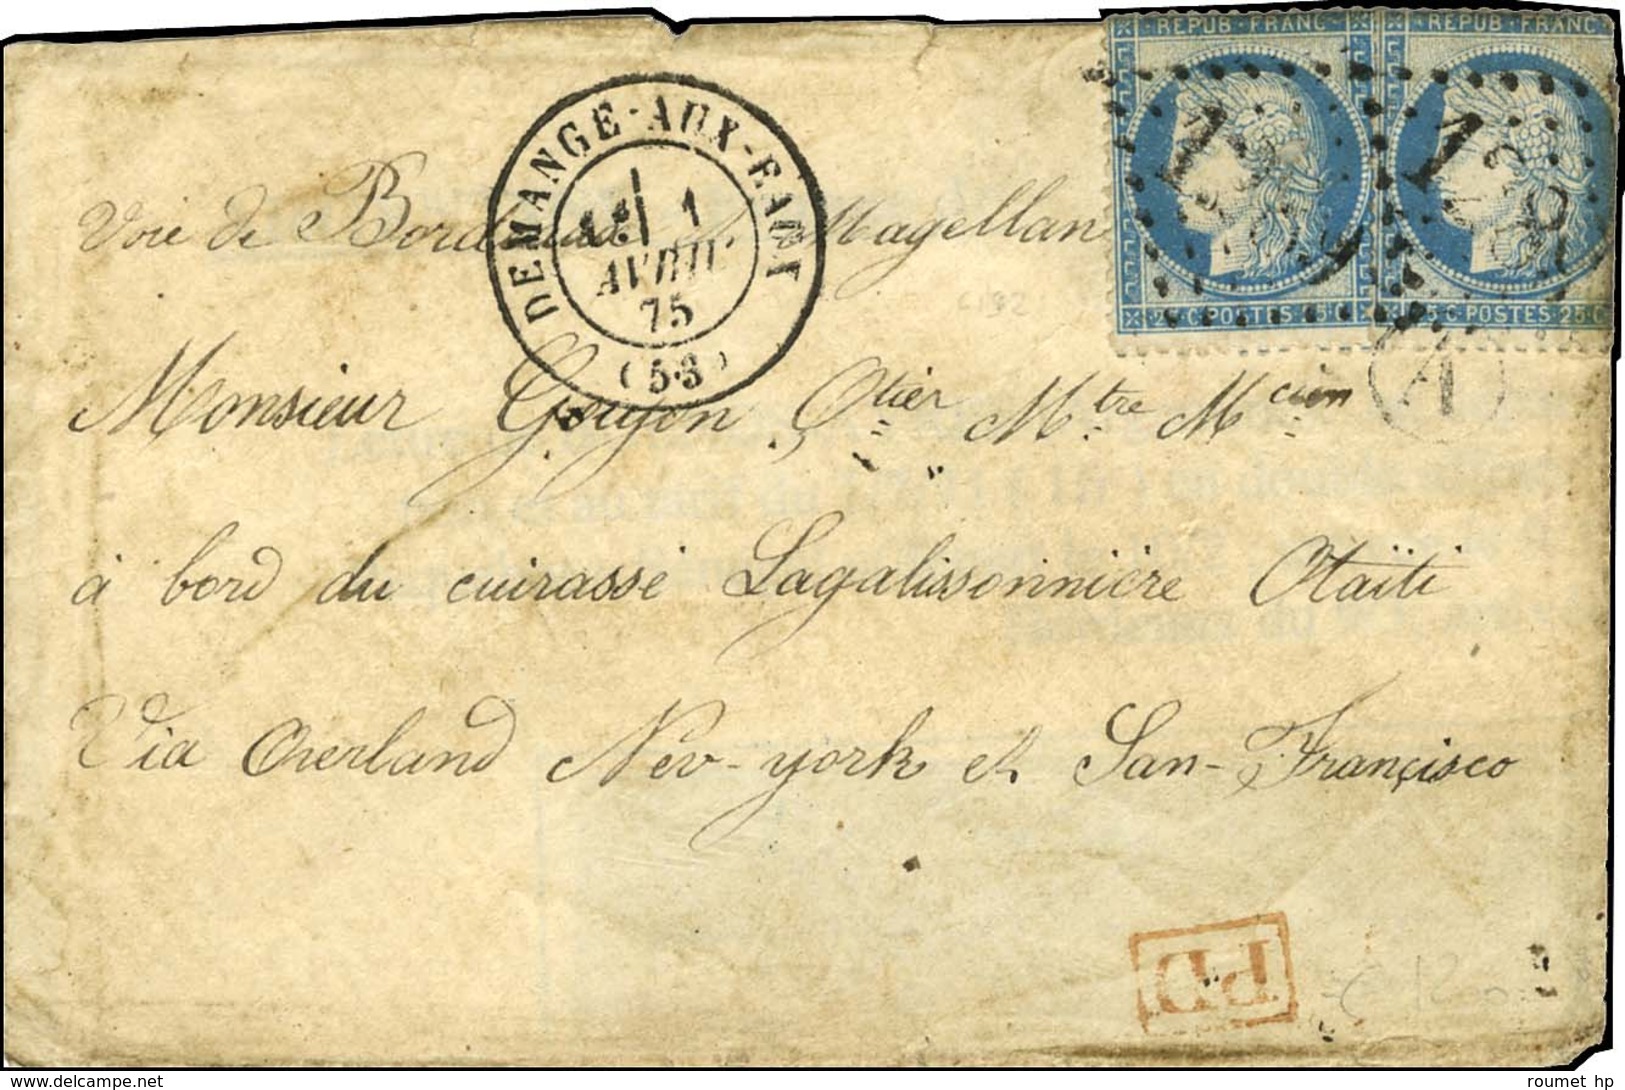 REPUB·FRANC· REPUB·FRANC
DEMANGE-AUX-EAUX
1
AVRIL
75
(53)
25 C POSTES 25 C 25 C POSTES 25 C
A
Voie de Bordeaux Magellan
Monsieur Goujon Qtier Mtre Mcien
à bord du cuirassé Lagalissonnière Otaïti
Via Overland Nev-york et San-Francisco
PD
delcampe.net
roumet hp